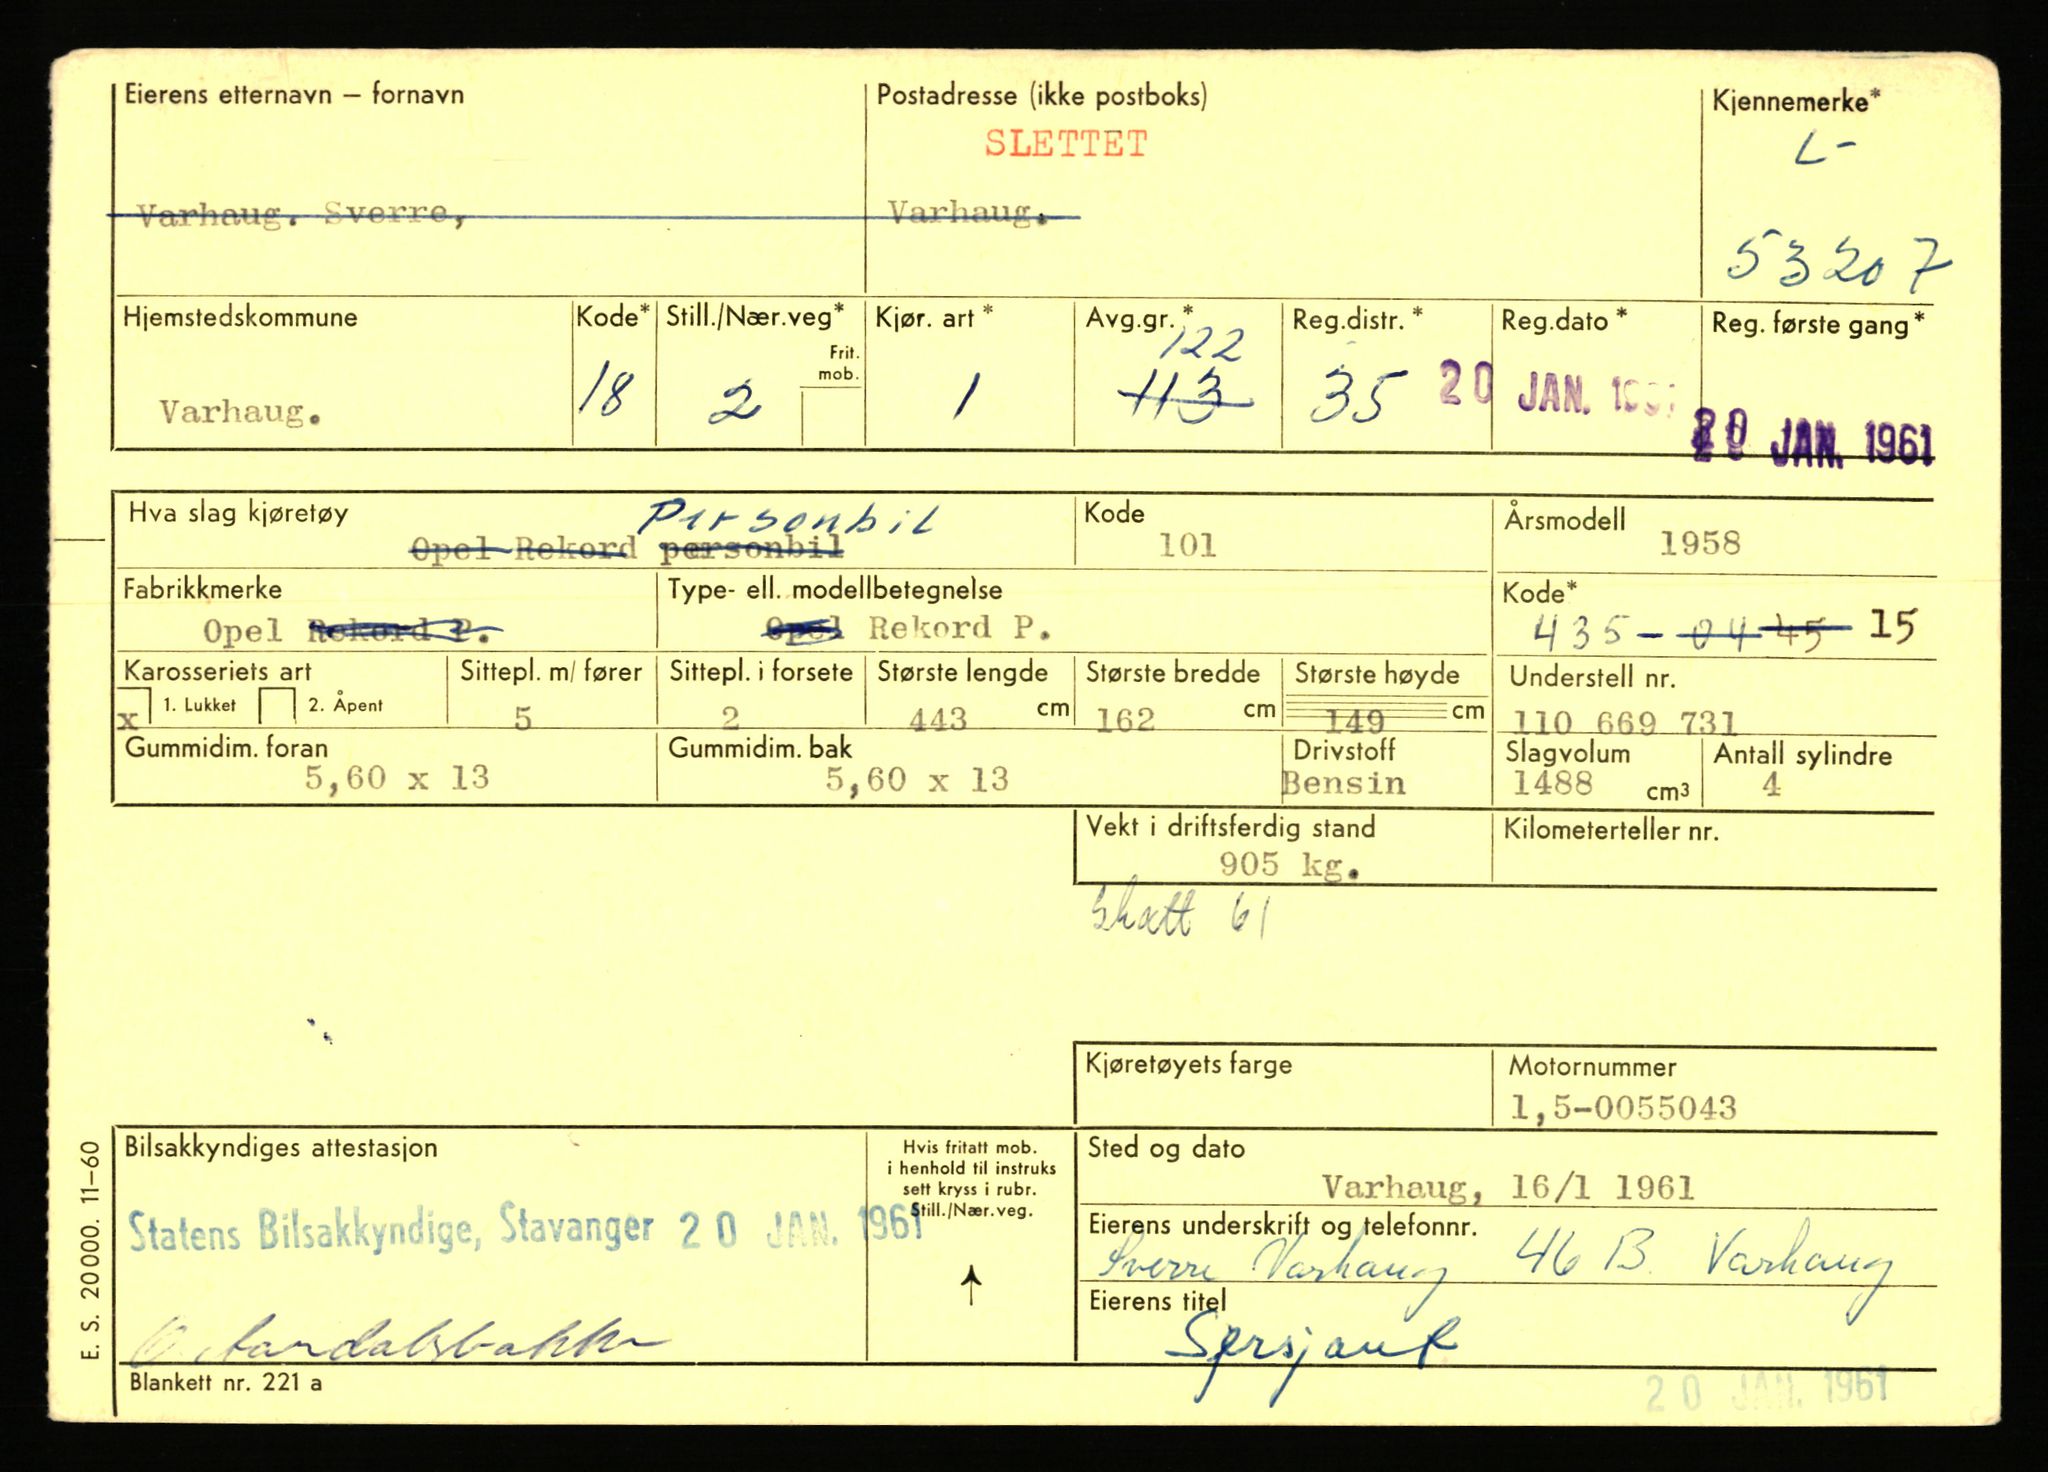 Eierens etternavn – fornavn Postadresse (ikke postboks) Kjennemerke*
SLETTET L-
Varhaug. Sverre, Varhaug.
53207
Hjemstedskommune Kode* Still./Nær.veg* Kjør. art * Avg.gr. * Reg.distr. * Reg.dato * Reg. første gang*
Frit. mob. 122
Varhaug. 18 2 1 113 35 20 JAN. 1961
20 JAN. 1961
Hva slag kjøretøy Personbil Kode Årsmodell
Opel Rekord personbil 101 1958
Fabrikkmerke Type- ell. modellbetegnelse Kode*
Opel Rekord P. Opel Rekord P. 435-04 45 15
Karosseriets art Sittepl. m/ fører Sittepl. i forsete Største lengde Største bredde Største høyde Understell nr.
x 1. Lukket 2. Åpent 5 2 443 cm 162 cm 149 cm 110 669 731
Gummidim. foran Gummidim. bak Drivstoff Slagvolum Antall sylindre
5,60 x 13 5,60 x 13 Bensin 1488 cm3 4
Vekt i driftsferdig stand Kilometerteller nr.
905 kg.
Skatt 61
Kjøretøyets farge Motornummer
1,5-0055043
Bilsakkyndiges attestasjon Hvis fritatt mob. Sted og dato
i henhold til instruks
sett kryss i rubr. Varhaug, 16/1 1961
Still./Nær.veg.
Statens Bilsakkyndige, Stavanger 20 JAN. 1961
Eierens underskrift og telefonnr.
Sverre Varhaug 46 B. Varhaug
Eierens titel
Sersjant
Blankett nr. 221 a
20 JAN. 1961
E. S. 20000. 11–60